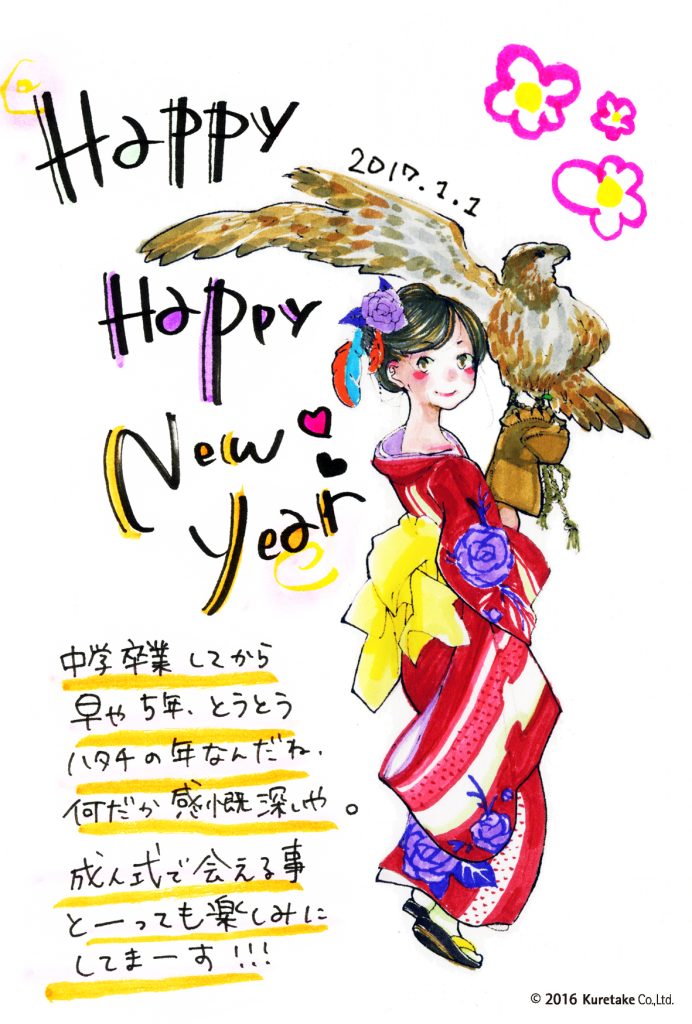 Happy
2017.1.1
Happy
New
Year
中学卒業してから
早や5年、とうとう
ハタチの年なんだね、
何だか感慨深しや。
成人式で会える事
とーっても楽しみに
してまーす!!!
© 2016 Kuretake Co.,Ltd.